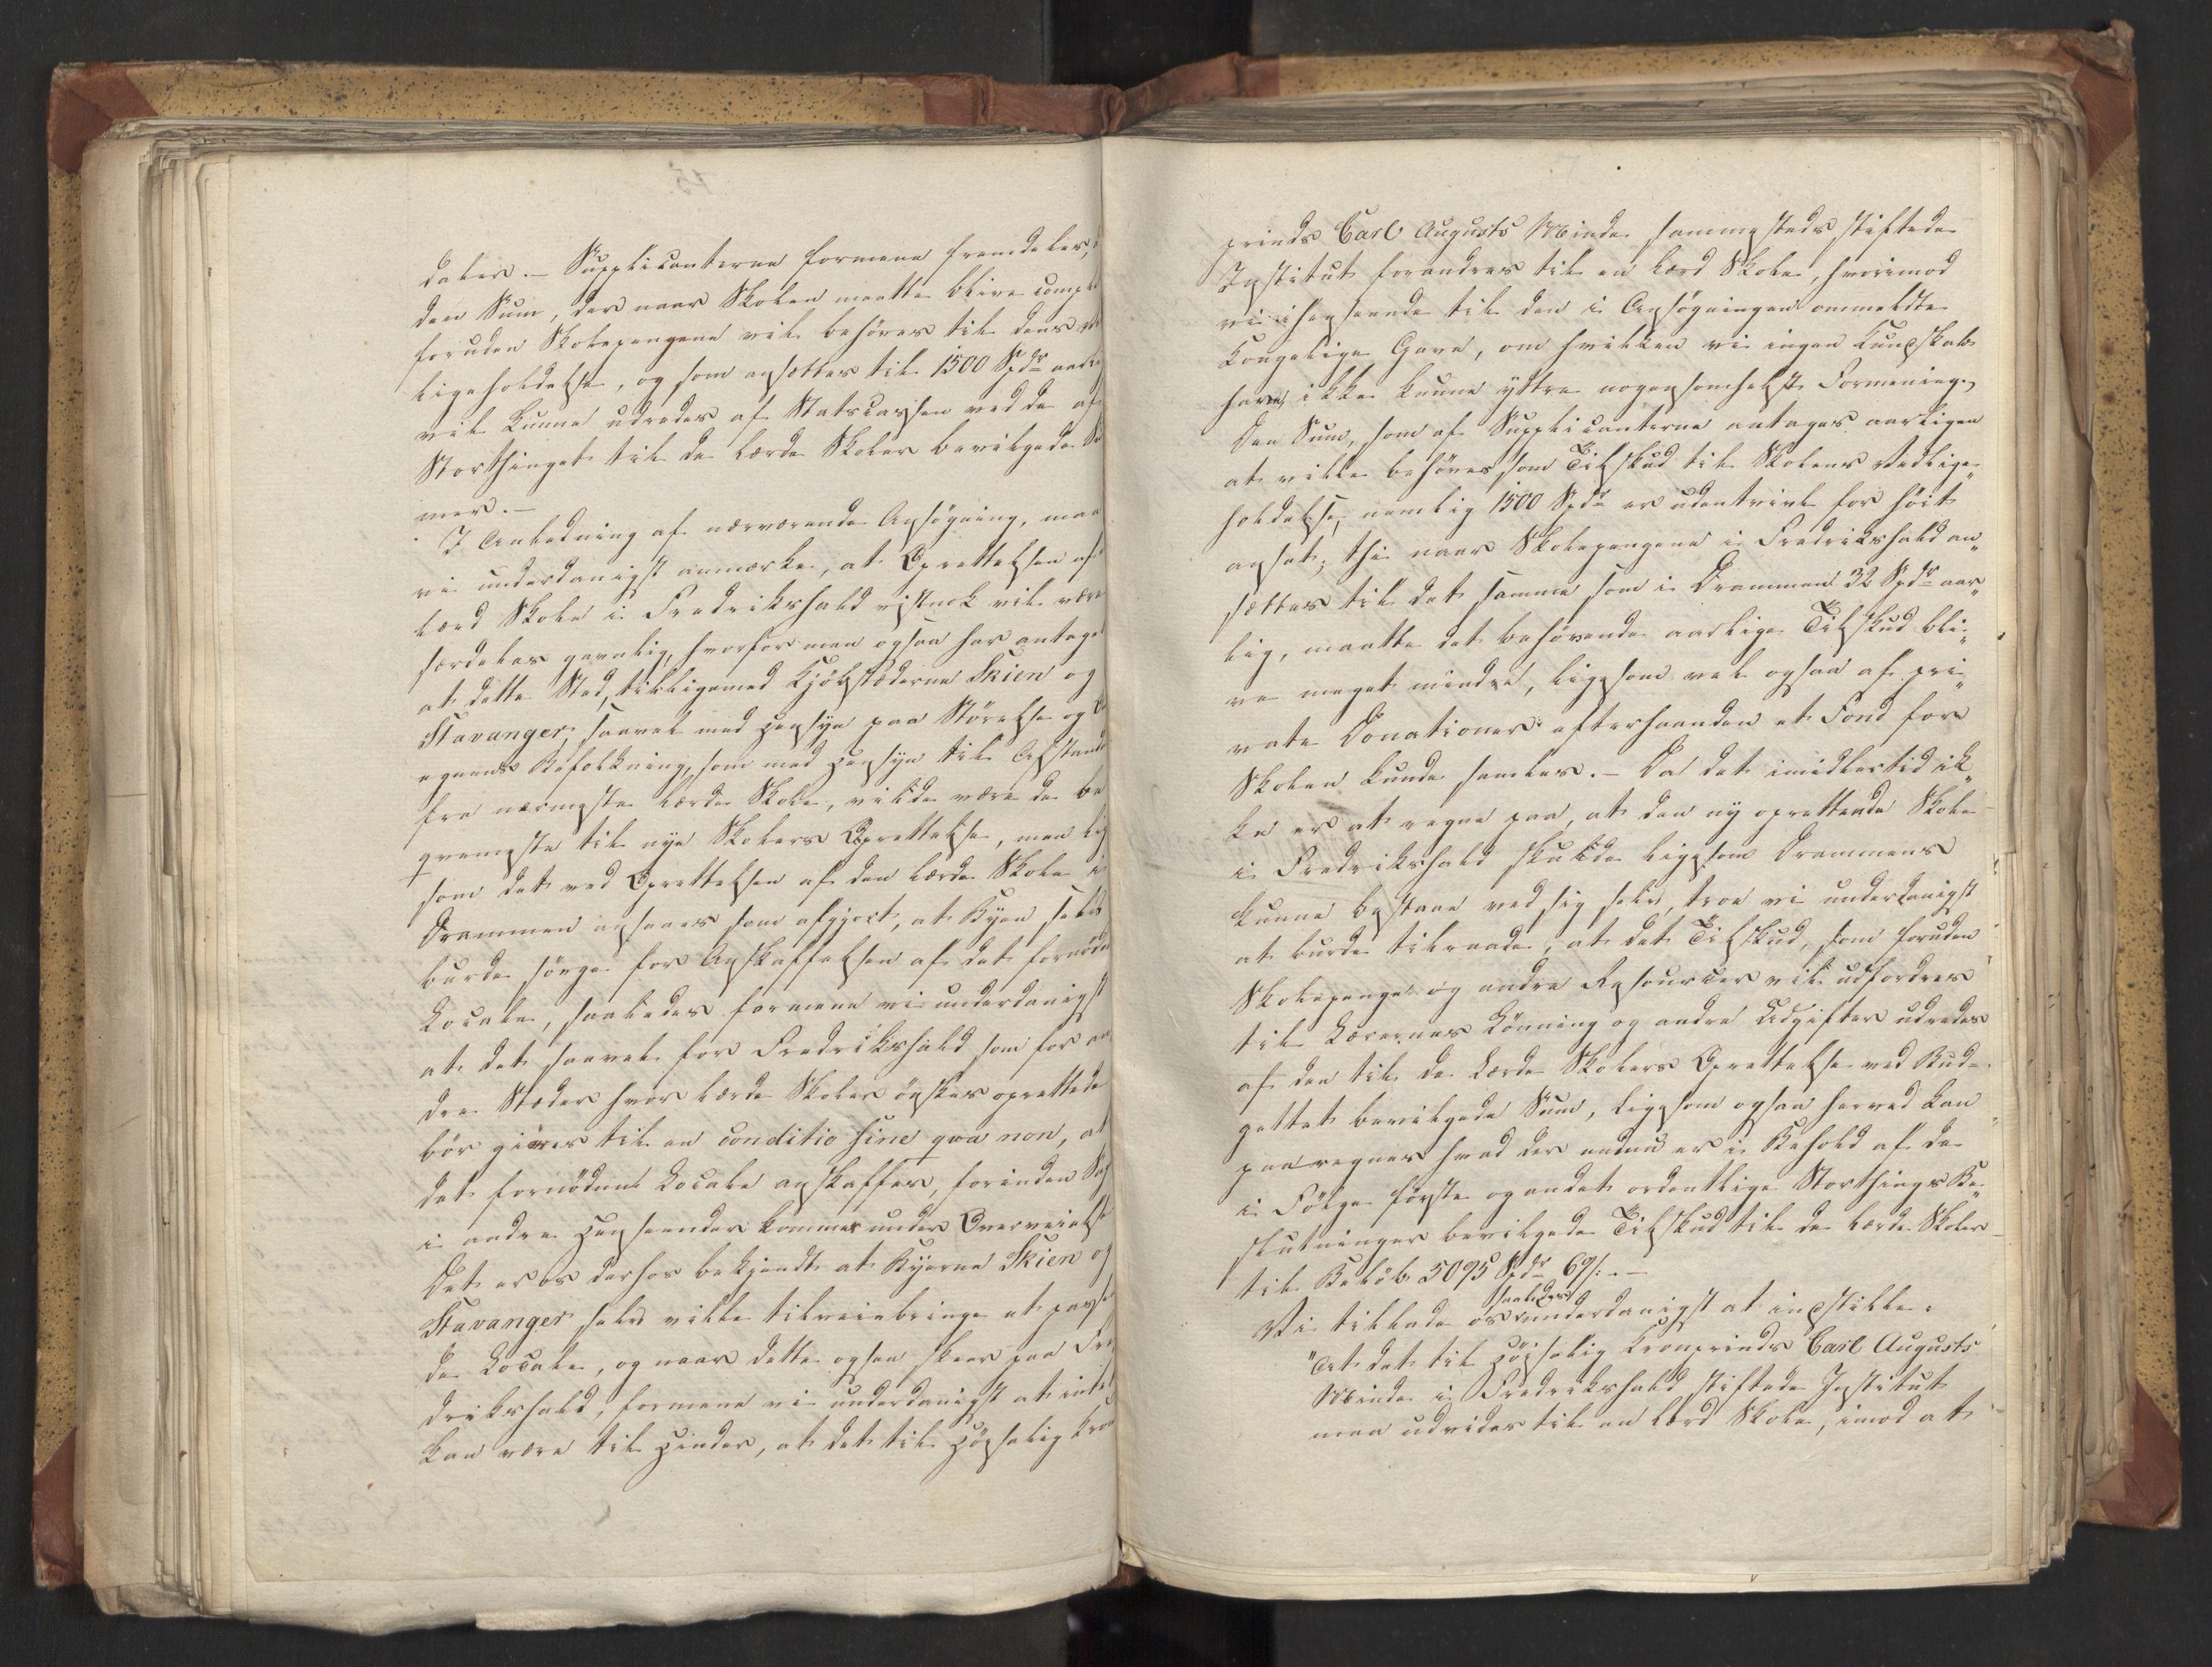 daler. – Supplicanterne formene fremdeles,
den Sum, der naar Skolen maatte blive comple
foruden Skolepengene vil behøves til dens ved
ligeholdelse, og som ansættes til 1500 Spdr aarl
vil kunne udredes af Statscassen ved de af
Storthinget til de lærde Skoler bevilgede Su
mer. –
I Anledning af nærværende Ansøgning, maa
vi underdanigst anmærke, at Oprettelsen af
lærd Skole i Fredrikshald vistnok vil være
særdeles gavnlig, hvorfor man ogsaa har antaget
at dette Sted, tilligemed Kjøbstæderne Skien og
Stavanger, saavel med Hensyn paa Størrelse og
egnens Befolkning, som med Hensyn til Afstand
fra nærmeste lærde Skole, vilde være de be
qvemeste til nye Skolers Oprettelse, men lig
som det ved Oprettelsen af den lærde Skole i
Drammen ansaaes som afgjort, at Byen selv
burde sørge for Anskaffelsen af det fornødne
Locale, saaledes formene vi underdanigst
at det saavel for Fredrikshald som for an
dre Stæder hvor lærde Skoler ønskes oprettede
bør gjøres til en conditio sine qva non, at
det fornødne Locale anskaffes, forinden Sag
i andre Henseender kommer under Overveielse
Det er os derhos bekjendt at Byerne Skien og
Stavanger selv ville tilveiebringe et passe
de Locale, og naar dette ogsaa skeer paa Fre
drikshald, formene vi underdanigst at intet
kan være til Hinder, at det til Høisalig Kron
prinds Carl Augusts Minde sammesteds stiftede
Institut forandres til en lærd Skole, hvorimod
vi ihenseende til den i Ansøgningen ommeldte
Kongelige Gave, om hvilken vi ingen Kundskab
have, ikke kunne yttre nogensomhelst Formening.
Den Sum, som af Supplicanterne antages aarligen
at ville behøves som Tilskud til Skolens Vedlige„
holdelse, nemlig 1500 Spdr er udentvivl for høit
ansat; thi naar Skolepengene i Fredrikshald an„
sættes til det samme som i Drammen 32 Spdr aar„
lig, maatte det behøvende aarlige Tilskud bli„
ve meget mindre, ligesom vel ogsaa af pri„
vate Donationer efterhaanden et Fond for
Skolen kunde samles. – Da det imidlertid ik„
ke er at regne paa, at den ny oprettende Skole
i Fredrikshald skulde ligesom Drammens
kunne bestaae ved sig selv, troe vi underdanigst
at burde tilraade, at det Tilskud, som foruden
Skolepenge og andre Resourcer vil udfordres
til Lærernes Lønning og andre Udgifter udredes
af den til de lærde Skolers Oprettelse ved Bud-
gettet bevilgede Sum, ligesom ogsaa herved kan
paaregnes hvad der endnu er i Behold af de
i Følge første og andet ordentlige Storthings Be„
slutninger bevilgede Tilskud til de lærde Skoler
til Beløb 5095 Spdr 69 ß. –
saaledes
Vi tillade os underdanigst at indstille:
"At det til Høisalig Kronprinds Carl Augusts
Minde i Fredrikshald stiftede Institut
maa udvides til en lærd Skole, imod at